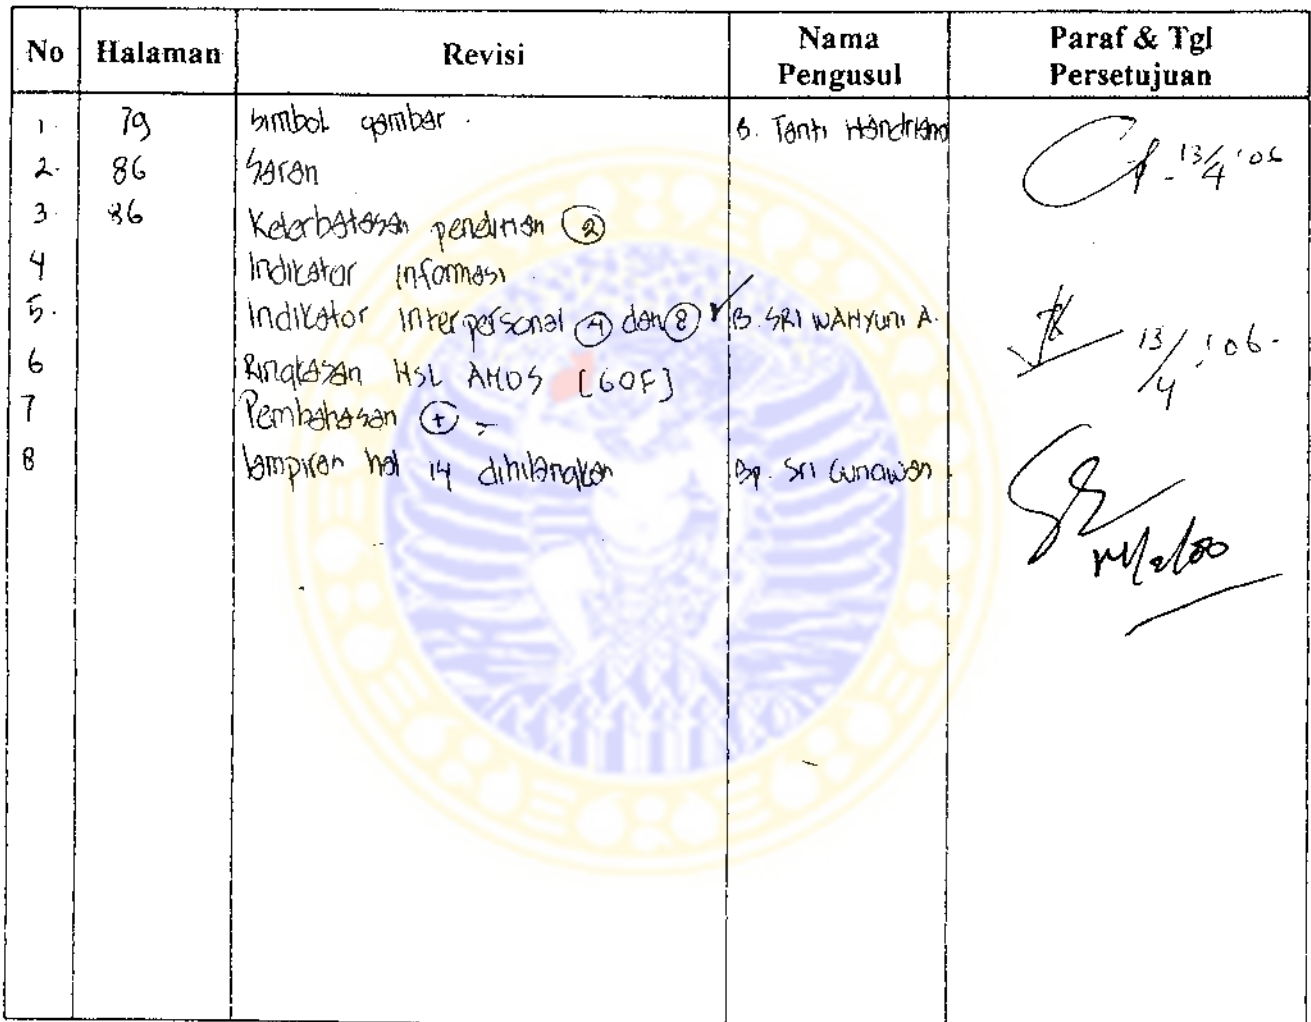 No Halaman Revisi Nama Pengusul Paraf & Tgl Persetujuan
1. 79 Simbol gambar. B. Tanti Handriana 13/4 '06
2. 86 Saran
3. 86 Keterbatasan penelitian (2)
4 Indikator informasi
5. Indikator interpersonal (4) dan (8) ✓ B. SRI WAHYUNI A. 13/4 '06.
6 Ringkasan HSL AMOS [GOF]
7 Pembahasan (+) -
8 lampiran hal 14 dihilangkan Bp. Sri Gunawan